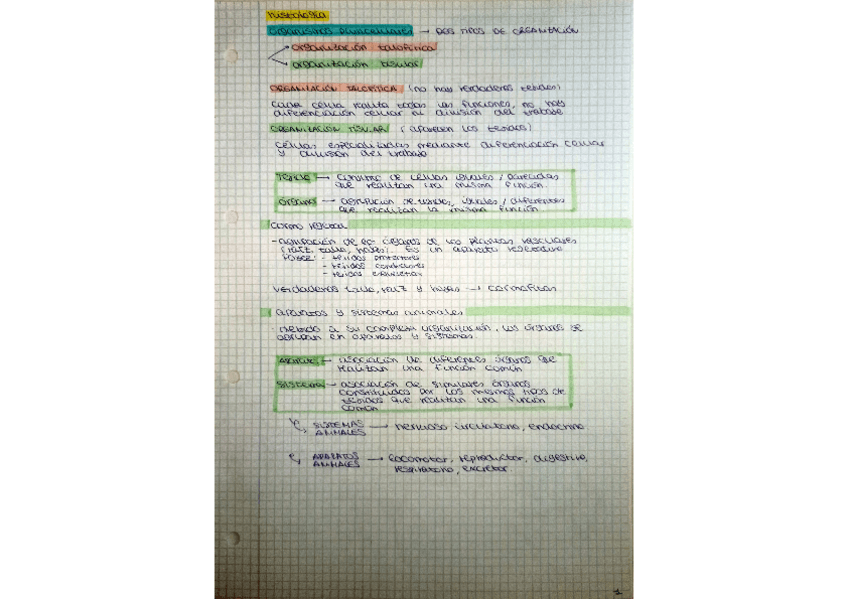 Histología
ORGANISMOS PLURICELULARES → DOS TIPOS DE ORGANIZACIÓN
organización talofítica
organización tisular
ORGANIZACIÓN TALOFÍTICA (no hay verdaderos tejidos)
Cada célula realiza todas las funciones, no hay
diferenciación celular ni división del trabajo
ORGANIZACIÓN TISULAR (aparecen los tejidos)
Células especializadas mediante diferenciación celular
y división del trabajo
TEJIDO → conjunto de células iguales / parecidas
que realizan una misma función.
ÓRGANO → agrupación de tejidos, iguales / diferentes
que realizan la misma función
Cormo vegetal
- Agrupación de órganos de las plantas vasculares
(raíz, tallo, hojas). Es un aparato vegetativo
Posee: - tejidos protectores
- tejidos conductores
- tejidos
verdaderos tallo, raíz y hojas → cormofitas
Aparatos y sistemas animales
- Debido a su compleja organización, los órganos se
agrupan en aparatos y sistemas.
Aparato → asociación de diferentes órganos que
realizan una función común
Sistema → asociación de similares órganos
constituidos por los mismos tipos de
tejidos que realizan una función
común
SISTEMAS
ANIMALES → nervioso, circulatorio, endocrino
APARATOS
ANIMALES → locomotor, reproductor, digestivo,
respiratorio, excretor.
1